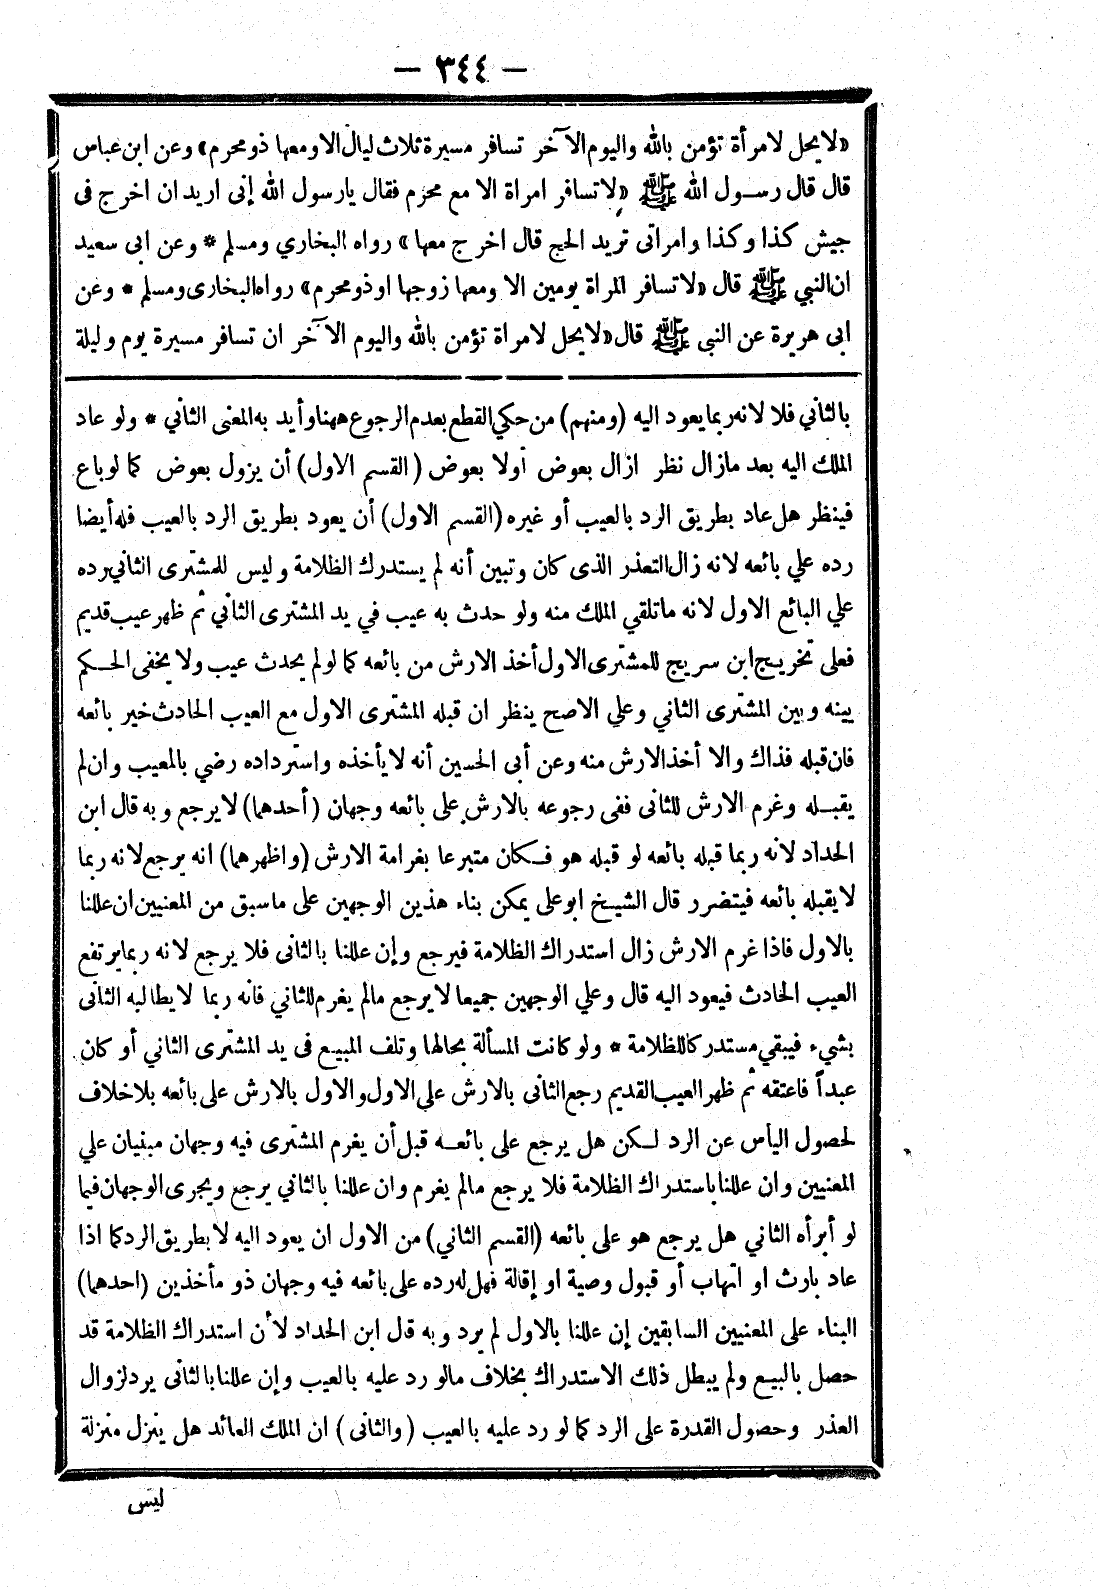 — ٣٤٤ —
«لايحل لامرأة تؤمن بالله واليوم الآخر تسافر مسيرة ثلاث ليال الا ومعها ذو محرم» وعن ابن عباس
قال قال رسول الله ﷺ «لا تسافر امراة الا مع محرم فقال يارسول الله إنى اريد ان اخرج فى
جيش كذا وكذا وامراتى تريد الحج قال اخرج معها» رواه البخاري ومسلم * وعن ابى سعيد
ان النبي ﷺ قال «لا تسافر المراة يومين الا ومعها زوجها او ذو محرم» رواه البخارى ومسلم * وعن
ابى هريرة عن النبى ﷺ قال «لايحل لامراة تؤمن بالله واليوم الآخر ان تسافر مسيرة يوم وليلة
بالثاني فلا لانه ربما يعود اليه (ومنهم) من حكي القطع بعدم الرجوع ههنا وأيد به المعنى الثاني * ولو عاد
الملك اليه بعد مازال نظر ازال بعوض أولا بعوض (القسم الاول) أن يزول بعوض كما لوباع
فينظر هل عاد بطريق الرد بالعيب أو غيره (القسم الاول) أن يعود بطريق الرد بالعيب فله أيضا
رده علي بائعه لانه زال التعذر الذى كان وتبين أنه لم يستدرك الظلامة وليس للمشترى الثاني رده
علي البائع الاول لانه ماتلقي الملك منه ولو حدث به عيب في يد المشترى الثاني ثم ظهر عيب قديم
فعلى تخريج ابن سريج للمشترى الاول أخذ الارش من بائعه كما لو لم يحدث عيب ولا يخفى الحكم
بينه وبين المشترى الثاني وعلي الاصح ينظر ان قبله المشترى الاول مع العيب الحادث خير بائعه
فان قبله فذاك والا أخذ الارش منه وعن أبى الحسين أنه لا يأخذه واسترداده رضي بالمعيب وان لم
يقبله وغرم الارش للثانى ففى رجوعه بالارش على بائعه وجهان (أحدهما) لا يرجع وبه قال ابن
الحداد لانه ربما قبله بائعه لو قبله هو فكان متبرعا بغرامة الارش (واظهرهما) انه يرجع لانه ربما
لا يقبله بائعه فيتضرر قال الشيخ ابو على يمكن بناء هذين الوجهين على ماسبق من المعنيين ان عللنا
بالاول فاذا غرم الارش زال استدراك الظلامة فيرجع وإن عللنا بالثانى فلا يرجع لانه ربما يرتفع
العيب الحادث فيعود اليه قال وعلي الوجهين جميعا لا يرجع مالم يغرم للثاني فانه ربما لا يطالبه الثانى
بشيء فيبقي مستدركا للظلامة * ولو كانت المسألة بحالها وتلف المبيع فى يد المشترى الثاني أو كان
عبداً فاعتقه ثم ظهر العيب القديم رجع الثانى بالارش علي الاول والاول بالارش على بائعه بلا خلاف
لحصول اليأس عن الرد لكن هل يرجع على بائعه قبل أن يغرم المشترى فيه وجهان مبنيان علي
المعنيين وان عللنا باستدراك الظلامة فلا يرجع مالم يغرم وان عللنا بالثاني يرجع ويجرى الوجهان فيما
لو أبرأه الثاني هل يرجع هو على بائعه (القسم الثاني) من الاول ان يعود اليه لا بطريق الرد كما اذا
عاد بارث او اتهاب أو قبول وصية او إقالة فهل له رده على بائعه فيه وجهان ذو مأخذين (احدهما)
البناء على المعنيين السابقين إن عللنا بالاول لم يرد وبه قل ابن الحداد لأن استدراك الظلامة قد
حصل بالبيع ولم يبطل ذلك الاستدراك بخلاف مالو رد عليه بالعيب وإن عللنا بالثانى يرد لزوال
العذر وحصول القدرة على الرد كما لو رد عليه بالعيب (والثانى) ان الملك العائد هل ينزل منزلة
ليس